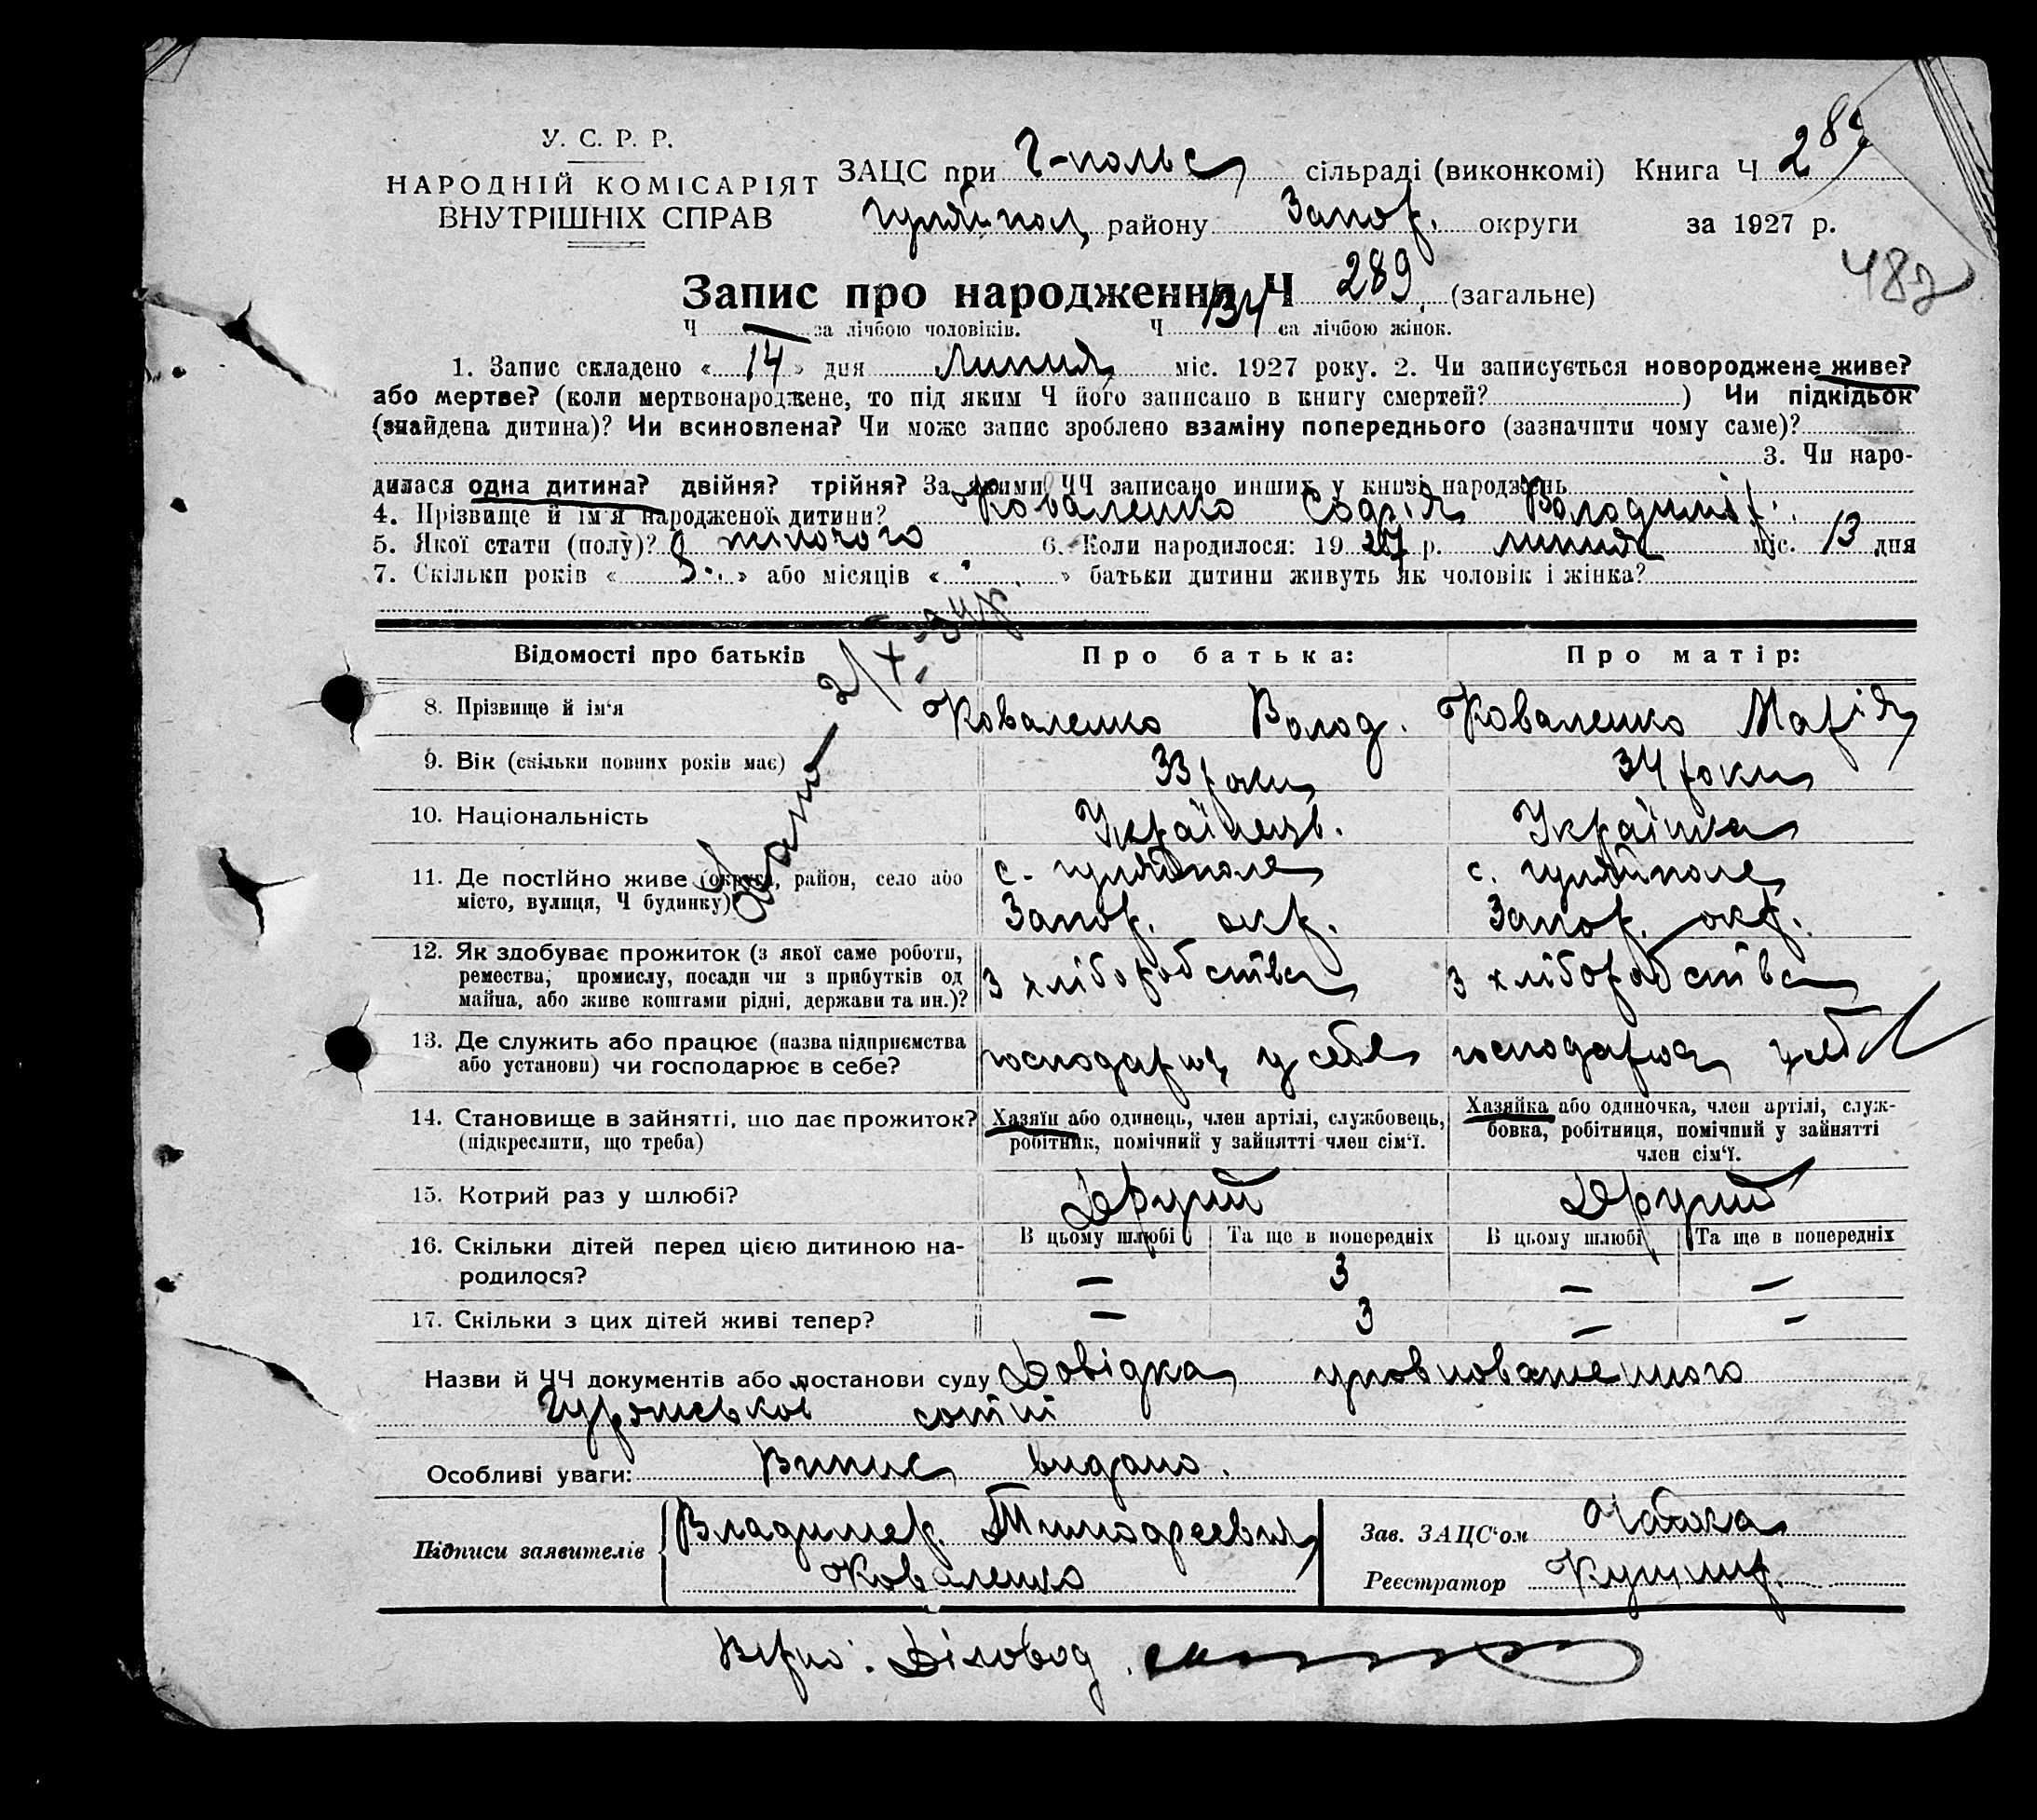 У. С. Р. Р.
НАРОДНІЙ КОМІСАРІЯТ
ВНУТРІШНІХ СПРАВ
ЗАЦС при Г-польс сільраді (виконкомі) Книга Ч 289
Гуляйпол району Запор. округи за 1927 р.
482
Запис про народження Ч 289 (загальне)
Ч — за лічбою чоловіків. Ч 134 за лічбою жінок.
1. Запис складено «14» дня Липня міс. 1927 року. 2. Чи записується новороджене живе?
або мертве? (коли мертвонароджене, то під яким Ч його записано в книгу смертей? ) Чи підкідьок
(знайдена дитина)? Чи всиновлена? Чи може запис зроблено взаміну попереднього (зазначити чому саме)?
3. Чи наро-
дилася одна дитина? двійня? трійня? За якими ЧЧ записано инших у книзі народжень
4. Прізвище й ім'я народженої дитини? Коваленко Софія Володимір.
5. Якої стати (полу)? жіночого 6. Коли народилося: 1927 р. липня міс. 13 дня
7. Скільки років « » або місяців « » батьки дитини живуть як чоловік і жінка?
Відомості про батьків Про батька: Про матір:
8. Прізвище й ім'я Коваленко Волод. Коваленко Марія
9. Вік (скільки повних років має) 33 роки 34 роки
10. Національність Українець. Українка
11. Де постійно живе (округа, район, село або с. Гуляйполе с. Гуляйполе
місто, вулиця, Ч будинку) Запор. окр. Запор. окр.
12. Як здобуває прожиток (з якої саме роботи,
ремества, промислу, посади чи з прибутків од з хліборобства з хліборобства
майна, або живе коштами рідні, держави та ин.)?
13. Де служить або працює (назва підприємства господарює у себе господарює у себе
або установи) чи господарює в себе?
14. Становище в зайнятті, що дає прожиток? Хазяїн або одинець, член артілі, службовець, Хазяйка або одиночка, член артілі, служ-
(підкреслити, що треба) робітник, помічний у зайнятті член сім'ї. бовка, робітниця, помічний у зайнятті
член сім'ї.
15. Котрий раз у шлюбі? Другий Другий
16. Скільки дітей перед цією дитиною на- В цьому шлюбі Та ще в попередніх В цьому шлюбі Та ще в попередніх
родилося? — 3 — —
17. Скільки з цих дітей живі тепер? — 3 — —
Назви й ЧЧ документів або постанови суду Довідка уповноваженного
сотні
Особливі уваги: Випис видано.
Підписи заявителів Владимер. Тимофеевич Зав. ЗАЦС'ом
Коваленко Реєстратор
Вірно: Діловод.